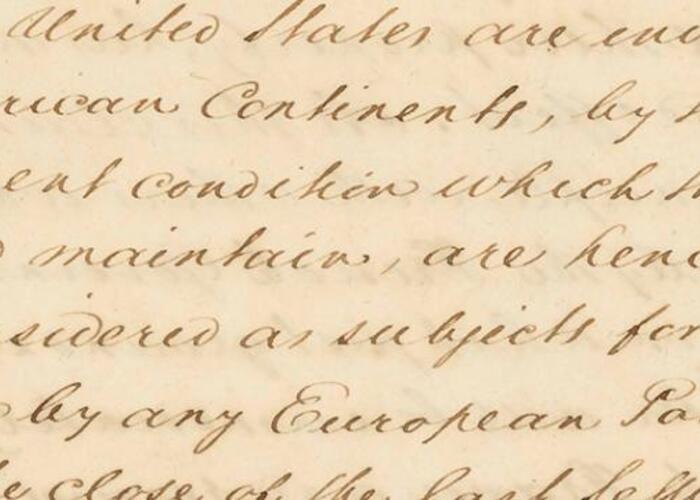 United States are
rican Continents, by
ent condition which
maintain, are henc
sidered as subjects for
by any European Po
close of the last Sess